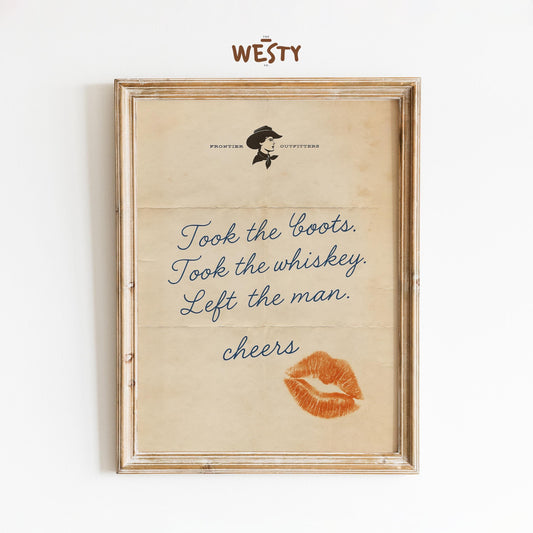 WESTY
FRONTIER OUTFITTERS
Took the boots.
Took the whiskey.
Left the man.
cheers